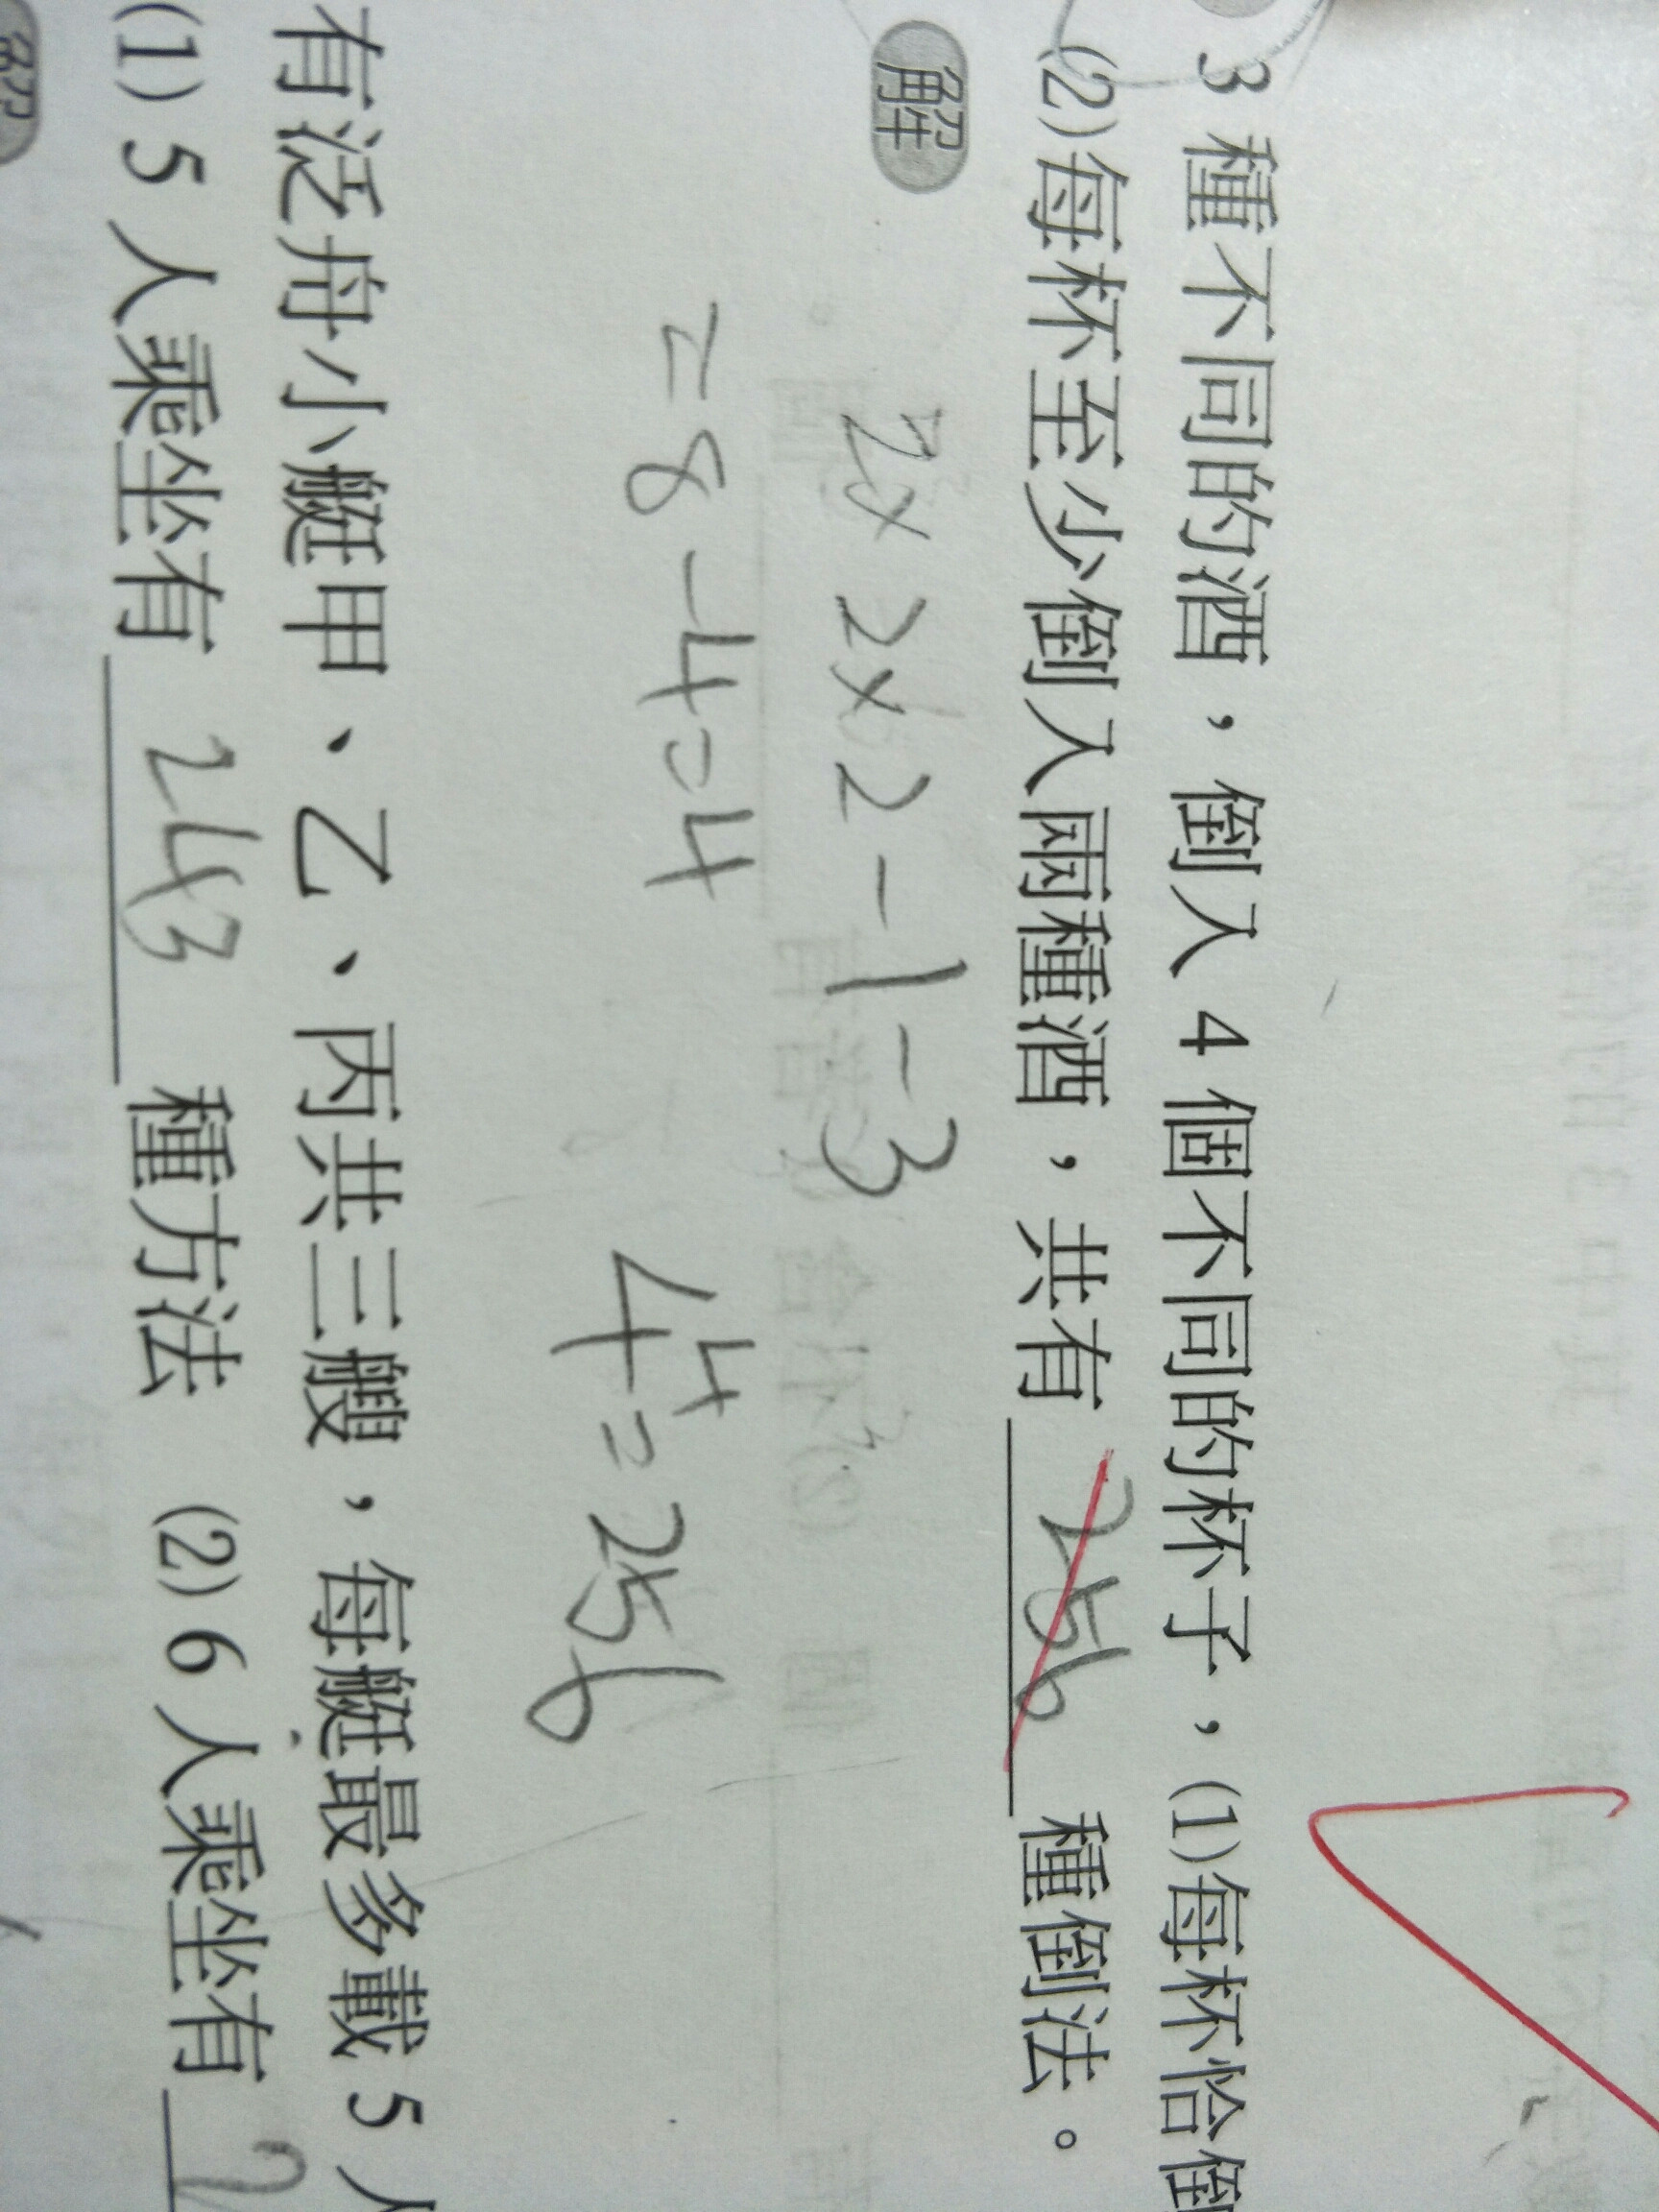 3 種不同的酒，倒入 4 個不同的杯子，(1)每杯恰倒
(2)每杯至少倒入兩種酒，共有 256 種倒法。
解
2×2×2-1-3
=8-4=4
4⁴=256
有泛舟小艇甲、乙、丙共三艘，每艇最多載 5 人
(1) 5 人乘坐有 243 種方法 (2) 6 人乘坐有